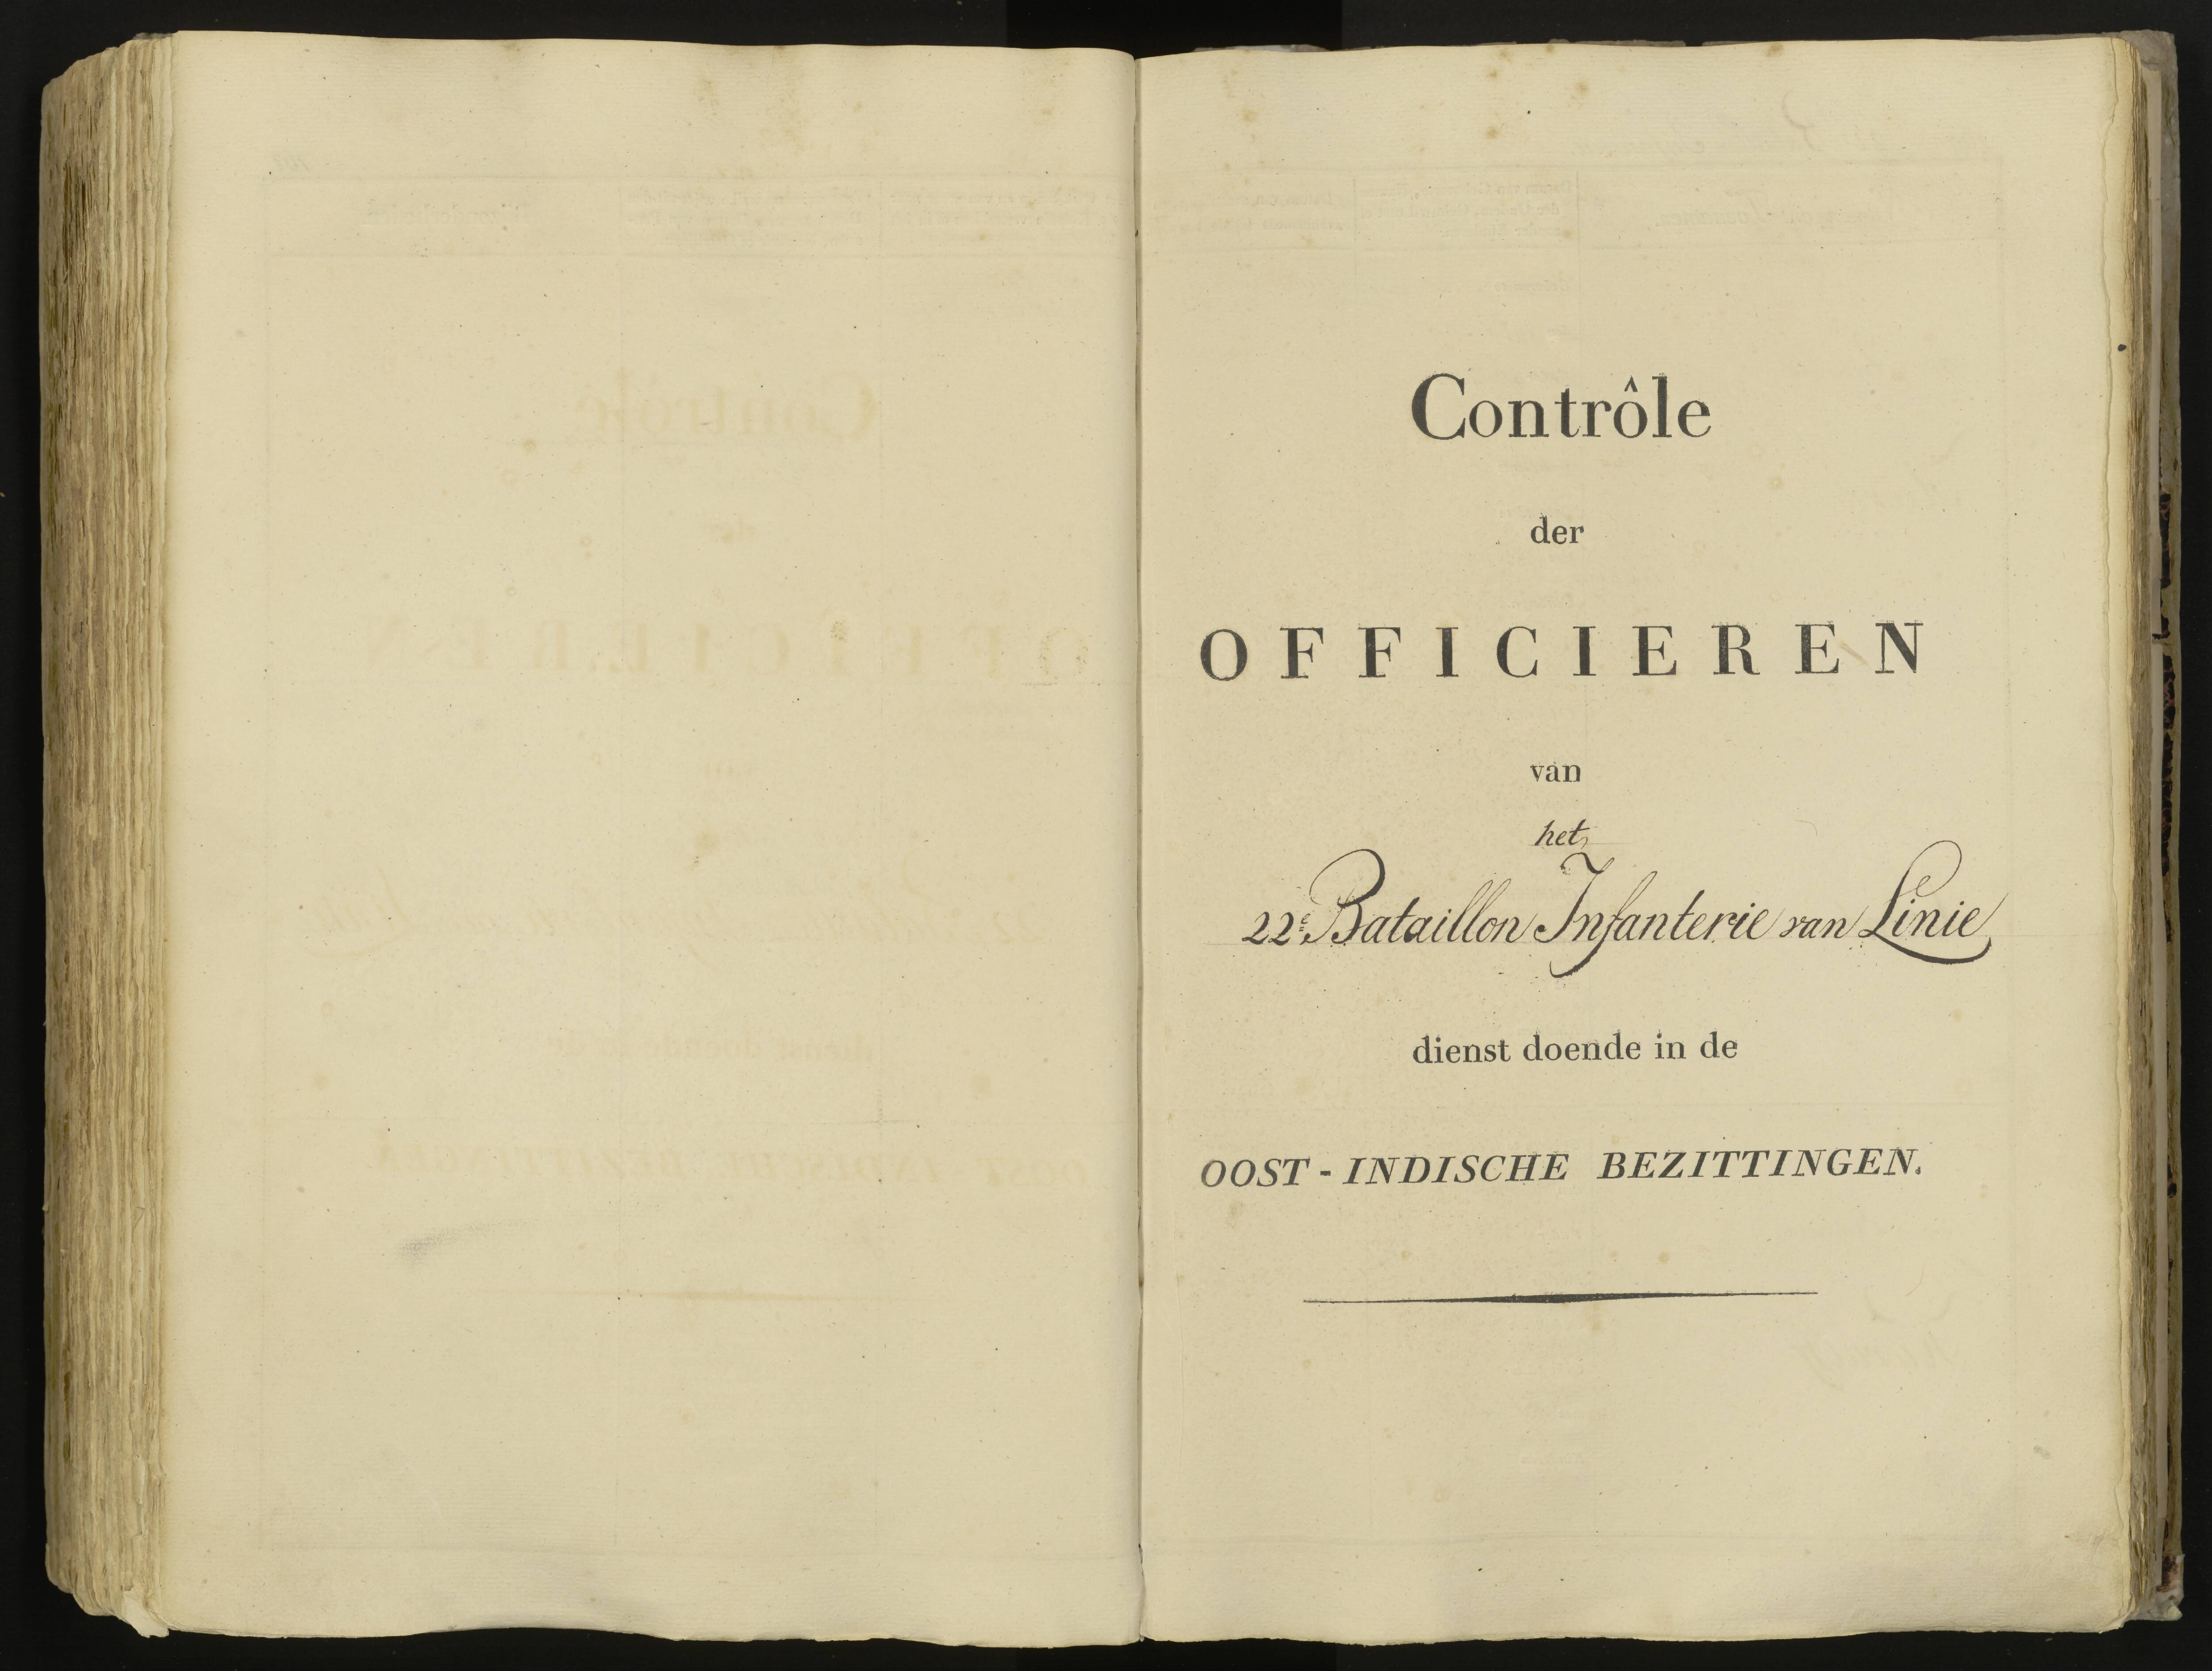 Contrôle
der
OFFICIEREN
van
het
22e Bataillon Infanterie van Linie
dienst doende in de
OOST-INDISCHE BEZITTINGEN.